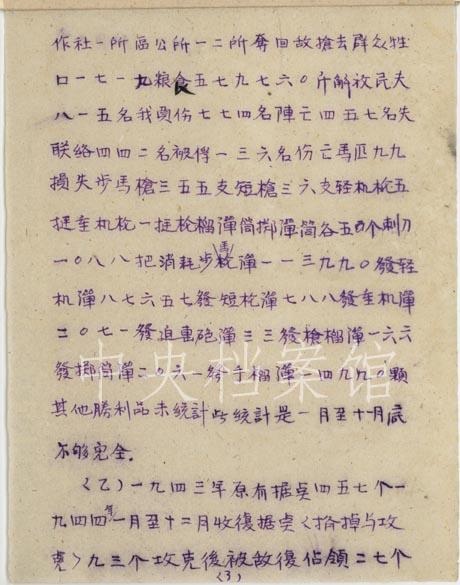 作社一所區公所一二所奪回敌搶去群众牲
口一七一九粮食五七九七六〇斤解放民夫
八一五名我負伤七七四名陣亡四五七名失
联络四四二名被俘一三六名伤亡馬匹九九
損失步馬槍三五五支短槍三六支轻机枪五
挺重机枪一挺枪榴彈筒擲彈筒各五个刺刀
一〇八八把消耗步馬枪彈一一三九九〇發轻
机彈八七六五七發短枪彈七八八發重机彈
二〇七一發迫击砲彈三三發槍榴彈一六六
發擲筒彈二〇六一發手榴彈一四九九〇顆
其他勝利品未統計些統計是一月至十月底
不够完全.
〈乙〉一九四三年原有据点四五七个一
九四四年一月至十二月收復据点〈挤掉与攻
克〉九三个攻克後被敌復佔領二七个
(3)
中央档案馆